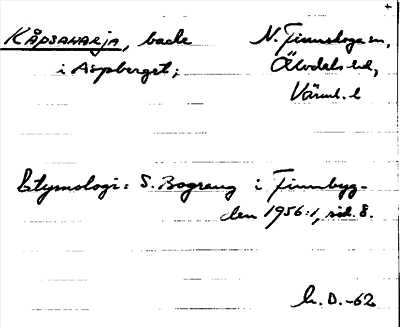 KÅPSAHARJA, backe
i Aspberget;
N. Finnskoga sn,
Älvdals hd,
Värml. l
Etymologi: S. Bograng i Finnbyg-
den 1956:1, sid. 8.
h. D. -62